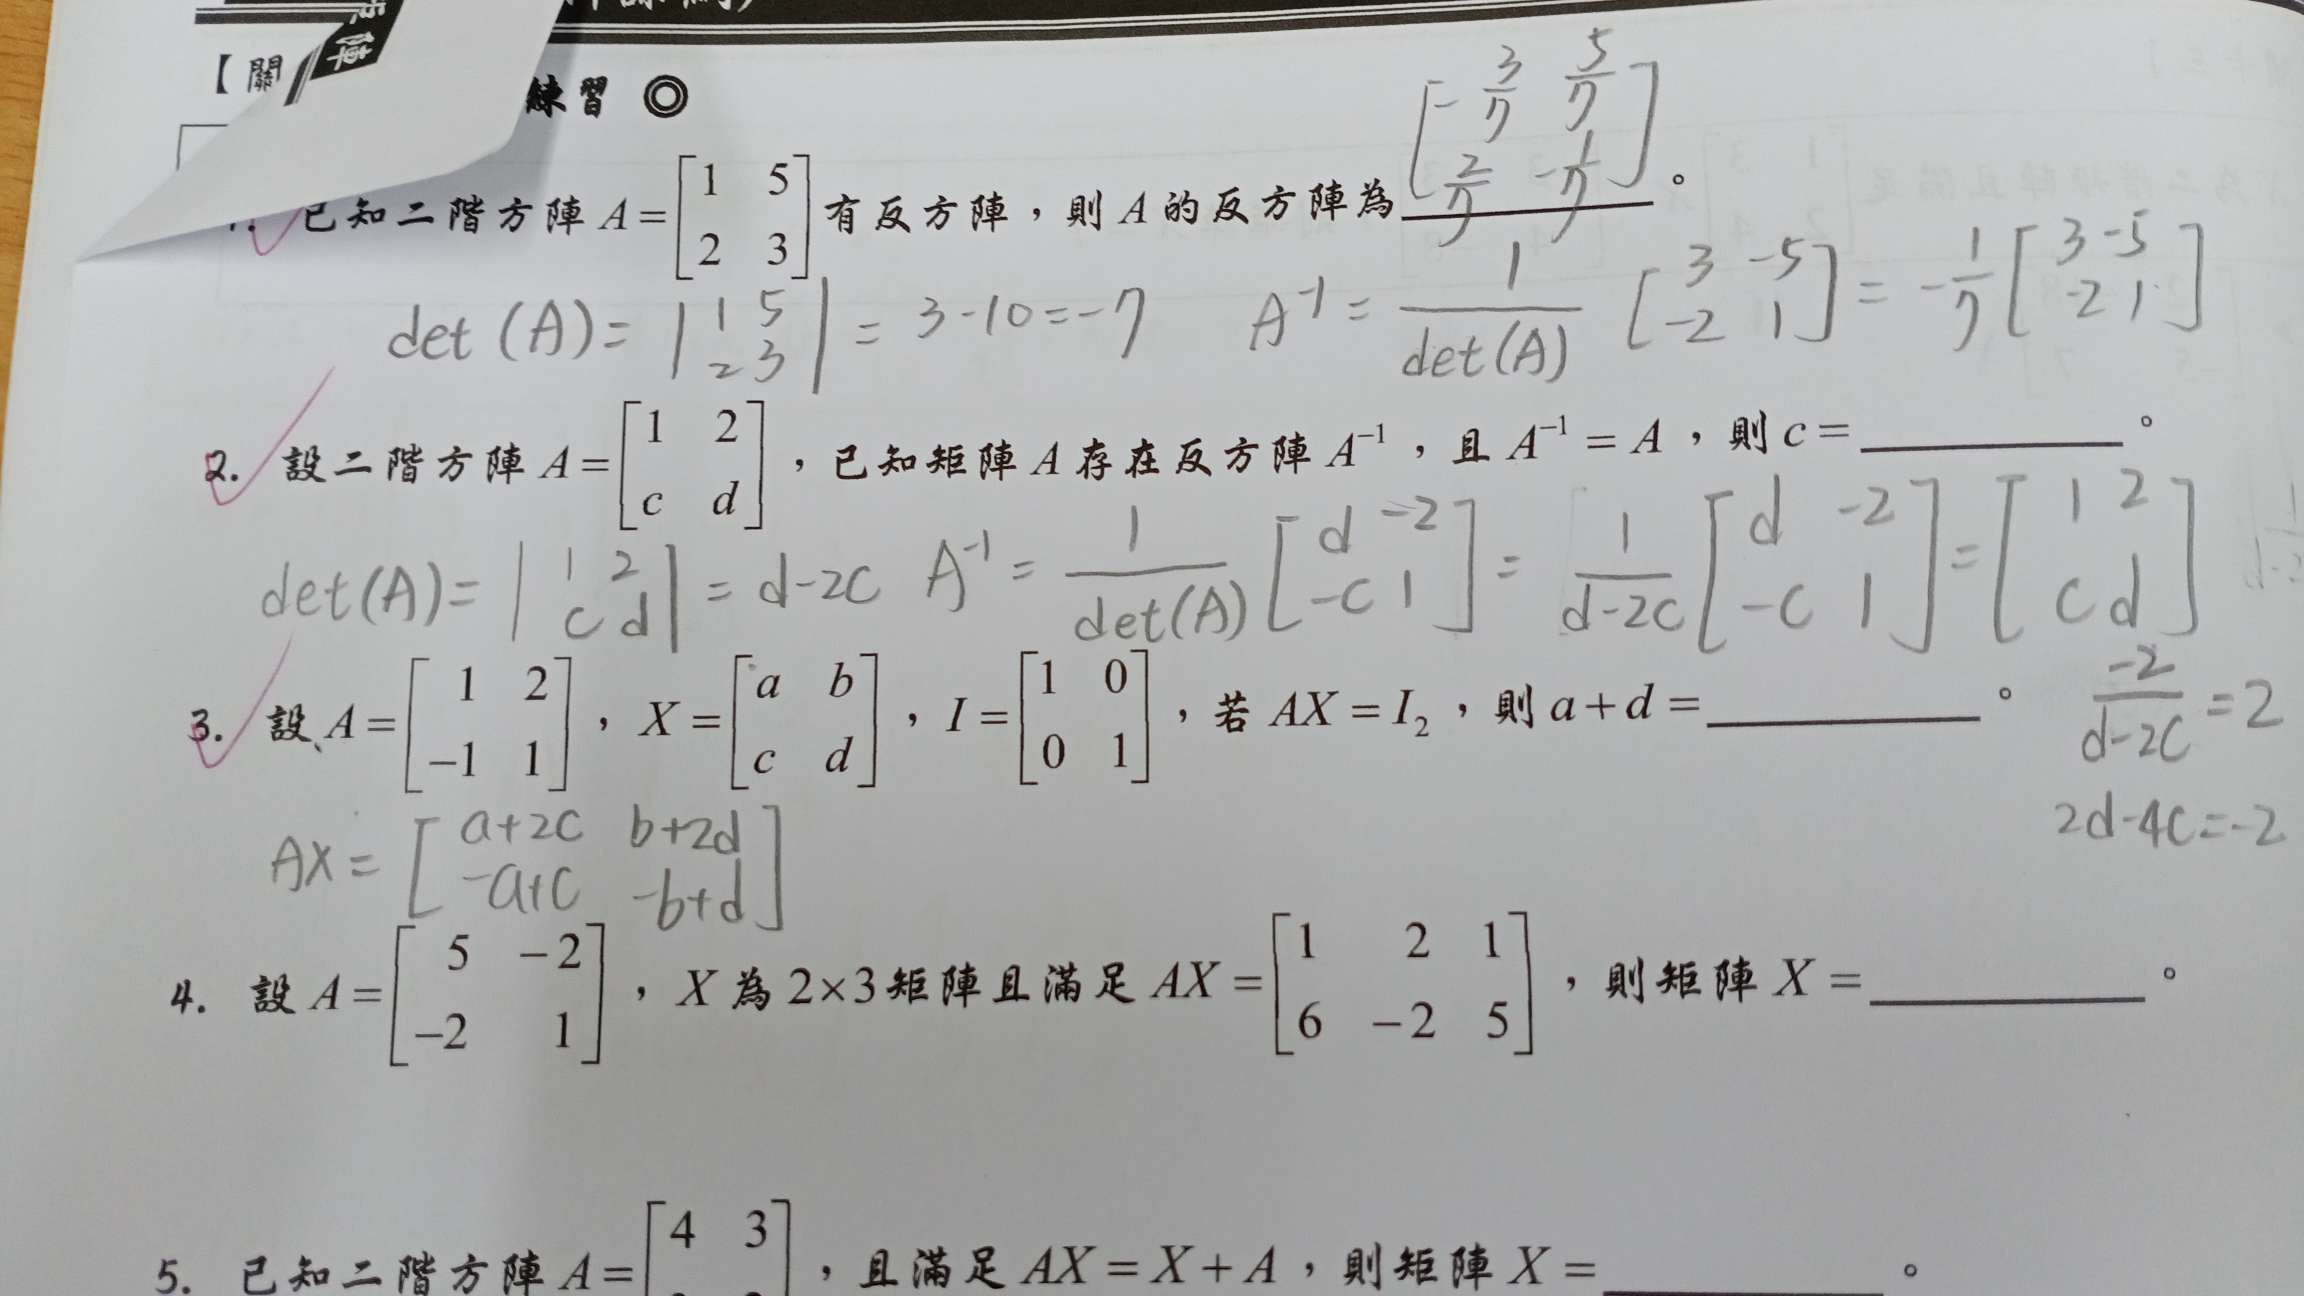 【關
練習 ◎
1. 已知二階方陣 A = [1 5; 2 3] 有反方陣，則 A 的反方陣為 [-3/7 5/7; 2/7 -1/7]。
det(A) = |1 5; 2 3| = 3-10 = -7 A^-1 = 1/det(A) [3 -5; -2 1] = -1/7 [3 -5; -2 1]
2. 設二階方陣 A = [1 2; c d]，已知矩陣 A 存在反方陣 A^-1，且 A^-1 = A，則 c = ______。
det(A) = |1 2; c d| = d-2c A^-1 = 1/det(A) [d -2; -c 1] = 1/(d-2c) [d -2; -c 1] = [1 2; c d]
-2/(d-2c) = 2
2d-4c=-2
3. 設 A = [1 2; -1 1]，X = [a b; c d]，I = [1 0; 0 1]，若 AX = I₂，則 a+d = ______。
AX = [a+2c b+2d; -a+c -b+d]
4. 設 A = [5 -2; -2 1]，X 為 2×3 矩陣且滿足 AX = [1 2 1; 6 -2 5]，則矩陣 X = ______。
5. 已知二階方陣 A = [4 3]，且滿足 AX = X + A，則矩陣 X = ______。